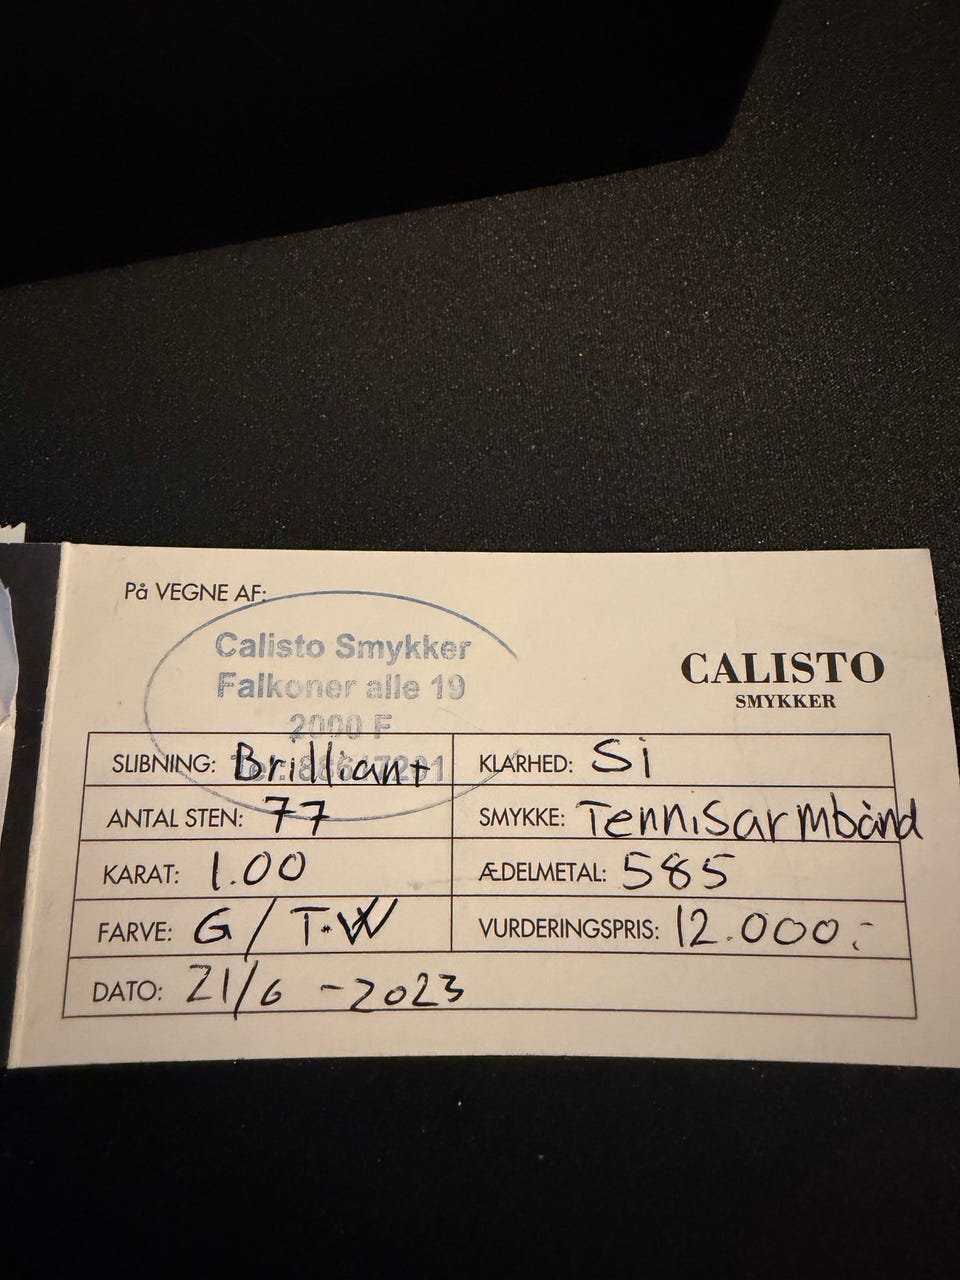 På VEGNE AF:
Calisto Smykker
Falkoner alle 19
2000 F
CALISTO
SMYKKER
SLIBNING: Brilliant
KLARHED: Si
ANTAL STEN: 77
SMYKKE: Tennisarmbånd
KARAT: 1.00
ÆDELMETAL: 585
FARVE: G / T.W
VURDERINGSPRIS: 12.000.-
DATO: 21/6 -2023